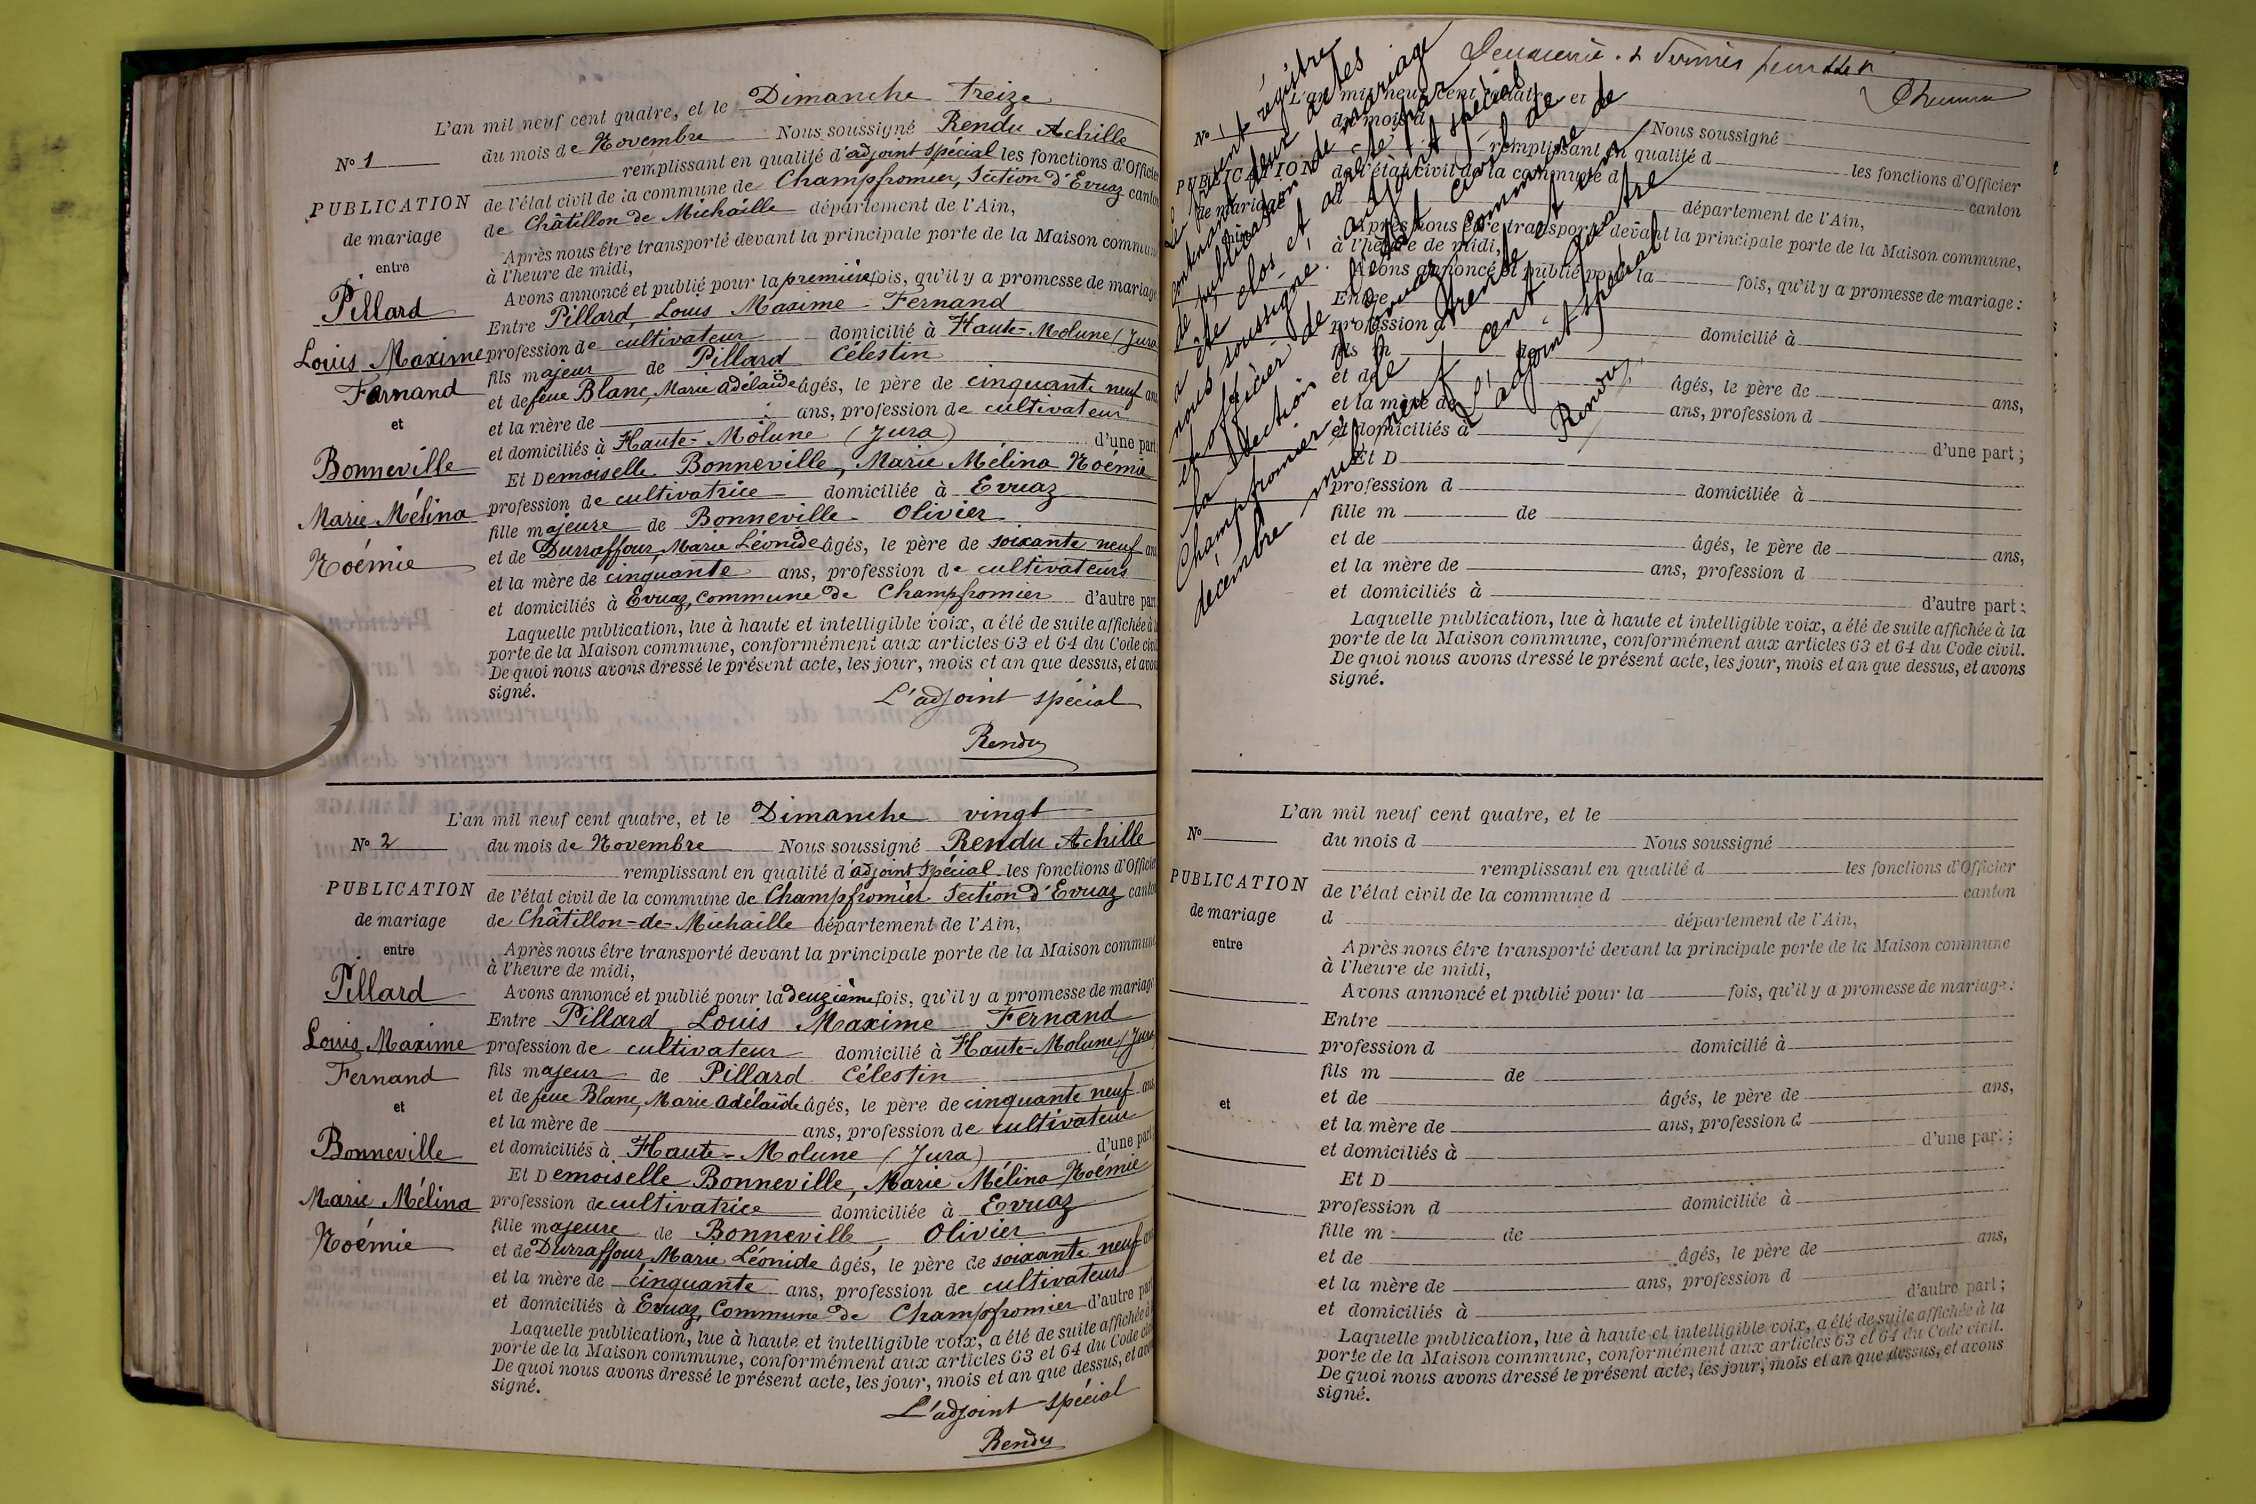 L'an mil neuf cent quatre, et le Dimanche treize
N° 1 du mois de Novembre Nous soussigné Rendu Achille
remplissant en qualité d'adjoint spécial les fonctions d'Officier
PUBLICATION de l'état civil de la commune de Champfromier, Section d'Evuaz canton
de mariage de Châtillon de Michaille département de l'Ain,
entre Après nous être transporté devant la principale porte de la Maison commune
à l'heure de midi,
Avons annoncé et publié pour la première fois, qu'il y a promesse de mariage
Pillard Entre Pillard Louis Maxime Fernand
Louis Maxime profession de cultivateur domicilié à Haute-Molune (Jura
Fernand fils majeur de Pillard Célestin
et de feue Blanc, Marie Adélaïde âgés, le père de cinquante neuf ans
et et la mère de ans, profession de cultivateur
et domiciliés à Haute-Molune (Jura) d'une part
Bonneville Et Demoiselle Bonneville, Marie Mélina Noémie
Marie Mélina profession de cultivatrice domiciliée à Evuaz
fille majeure de Bonneville Olivier
Noémie et de Durraffour, Marie Léonide âgés, le père de soixante neuf ans
et la mère de cinquante ans, profession de cultivateurs
et domiciliés à Evuaz, Commune de Champfromier d'autre part
Laquelle publication, lue à haute et intelligible voix, a été de suite affichée à la
porte de la Maison commune, conformément aux articles 63 et 64 du Code civil
De quoi nous avons dressé le présent acte, les jour, mois et an que dessus, et avons
signé.
L'adjoint spécial
Rendu
L'an mil neuf cent quatre, et le Dimanche vingt
N° 2 du mois de Novembre Nous soussigné Rendu Achille
remplissant en qualité d'adjoint spécial les fonctions d'Officier
PUBLICATION de l'état civil de la commune de Champfromier Section d'Evuaz canton
de mariage de Châtillon-de-Michaille département de l'Ain,
entre Après nous être transporté devant la principale porte de la Maison commune
à l'heure de midi,
Pillard Avons annoncé et publié pour la deuxième fois, qu'il y a promesse de mariage
Entre Pillard Louis Maxime Fernand
Louis Maxime profession de cultivateur domicilié à Haute-Molune (Jura
Fernand fils majeur de Pillard Célestin
et de feue Blanc, Marie Adélaïde âgés, le père de cinquante neuf ans
et et la mère de ans, profession de cultivateur
Bonneville et domiciliés à Haute-Molune (Jura) d'une part
Et Demoiselle Bonneville, Marie Mélina Noémie
Marie Mélina profession de cultivatrice domiciliée à Evuaz
fille majeure de Bonneville, Olivier
Noémie et de Durraffour, Marie Léonide âgés, le père de soixante neuf ans
et la mère de cinquante ans, profession de cultivateurs
et domiciliés à Evuaz, Commune de Champfromier d'autre part
Laquelle publication, lue à haute et intelligible voix, a été de suite affichée à la
porte de la Maison commune, conformément aux articles 63 et 64 du Code civil
De quoi nous avons dressé le présent acte, les jour, mois et an que dessus, et avons
signé.
L'adjoint spécial
Rendu
Deuxième & dernier feuillet
Le présent régistre
contenant deux actes
de publication de mariage
a été clos et arrêté par
nous soussigné adjoint spécial
et officier de l'état civil de
la Section d'Evuaz, Commune de
Champfromier le trente et un
décembre mil neuf cent quatre
L'adjoint spécial
Rendu
L'an mil neuf cent quatre, et
N° du mois d Nous soussigné
remplissant en qualité d les fonctions d'Officier
PUBLICATION de l'état civil de la commune d canton
de mariage d département de l'Ain,
Après nous être transporté devant la principale porte de la Maison commune,
à l'heure de midi,
Avons annoncé et publié pour la fois, qu'il y a promesse de mariage :
Entre
profession d domicilié à
fils m de
et de âgés, le père de ans,
et la mère de ans, profession d
et domiciliés à d'une part ;
Et D
profession d domiciliée à
fille m de
et de âgés, le père de ans,
et la mère de ans, profession d
et domiciliés à d'autre part ;
Laquelle publication, lue à haute et intelligible voix, a été de suite affichée à la
porte de la Maison commune, conformément aux articles 63 et 64 du Code civil.
De quoi nous avons dressé le présent acte, les jour, mois et an que dessus, et avons
signé.
L'an mil neuf cent quatre, et le
N° du mois d Nous soussigné
remplissant en qualité d les fonctions d'Officier
PUBLICATION de l'état civil de la commune d canton
de mariage d département de l'Ain,
entre Après nous être transporté devant la principale porte de la Maison commune
à l'heure de midi,
Avons annoncé et publié pour la fois, qu'il y a promesse de mariage :
Entre
profession d domicilié à
fils m de
et de âgés, le père de ans,
et et la mère de ans, profession d
et domiciliés à d'une part ;
Et D
profession d domiciliée à
fille m de
et de âgés, le père de ans,
et la mère de ans, profession d
et domiciliés à d'autre part ;
Laquelle publication, lue à haute et intelligible voix, a été de suite affichée à la
porte de la Maison commune, conformément aux articles 63 et 64 du Code civil.
De quoi nous avons dressé le présent acte, les jour, mois et an que dessus, et avons
signé.